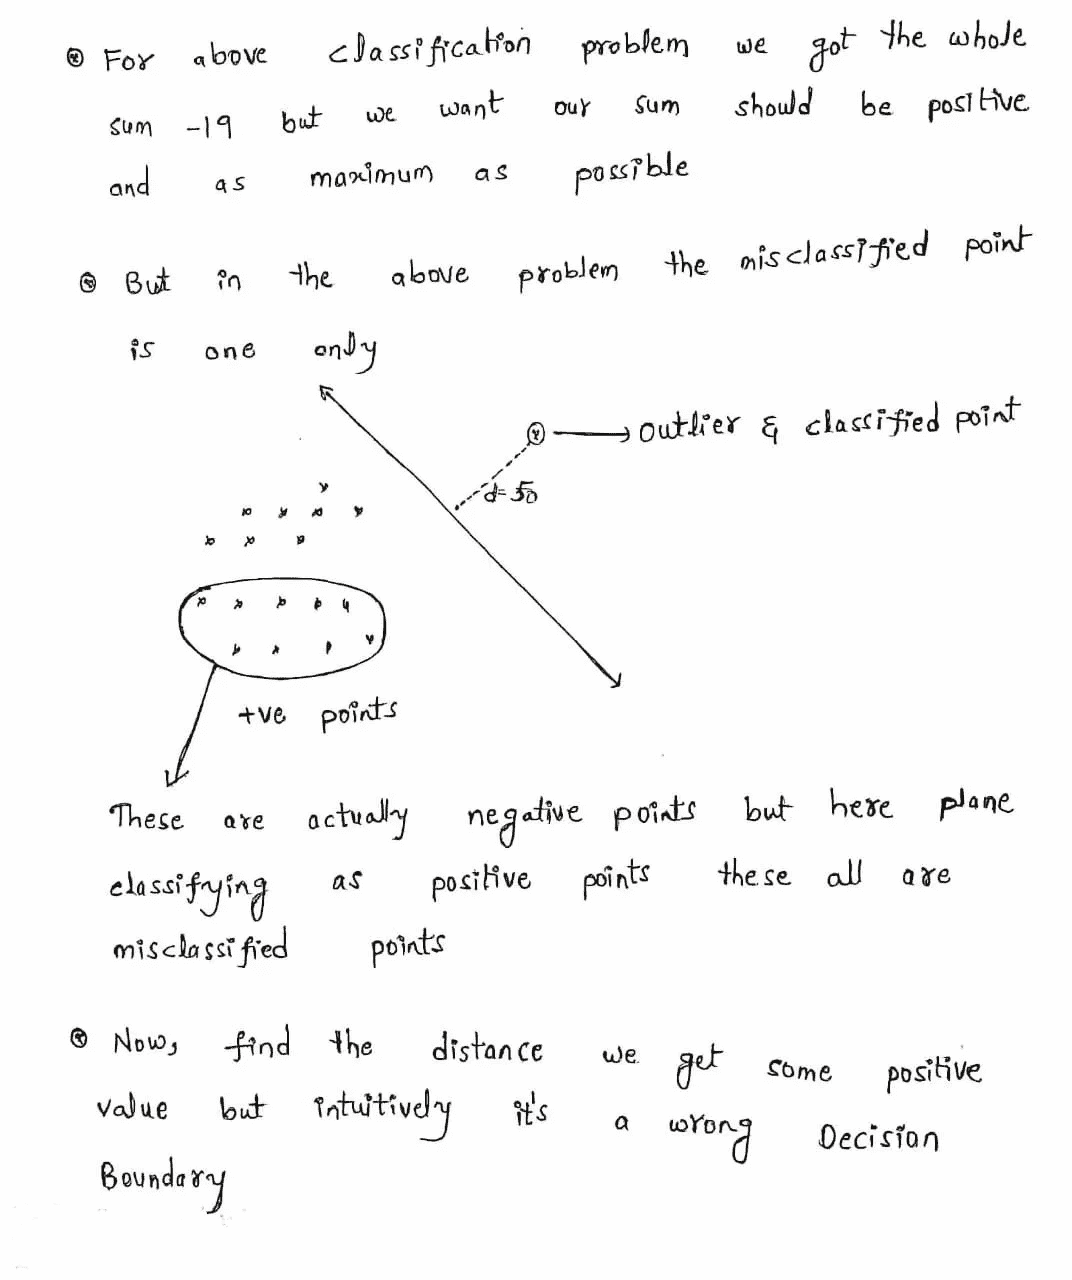 For above classification problem we got the whole
sum -19 but we want our sum should be positive
and as maximum as possible
But in the above problem the misclassified point
is one only
outlier & classified point
d=50
+ve points
These are actually negative points but here plane
classifying as positive points these all are
misclassified points
Now, find the distance we get some positive
value but intuitively it's a wrong Decision
Boundary